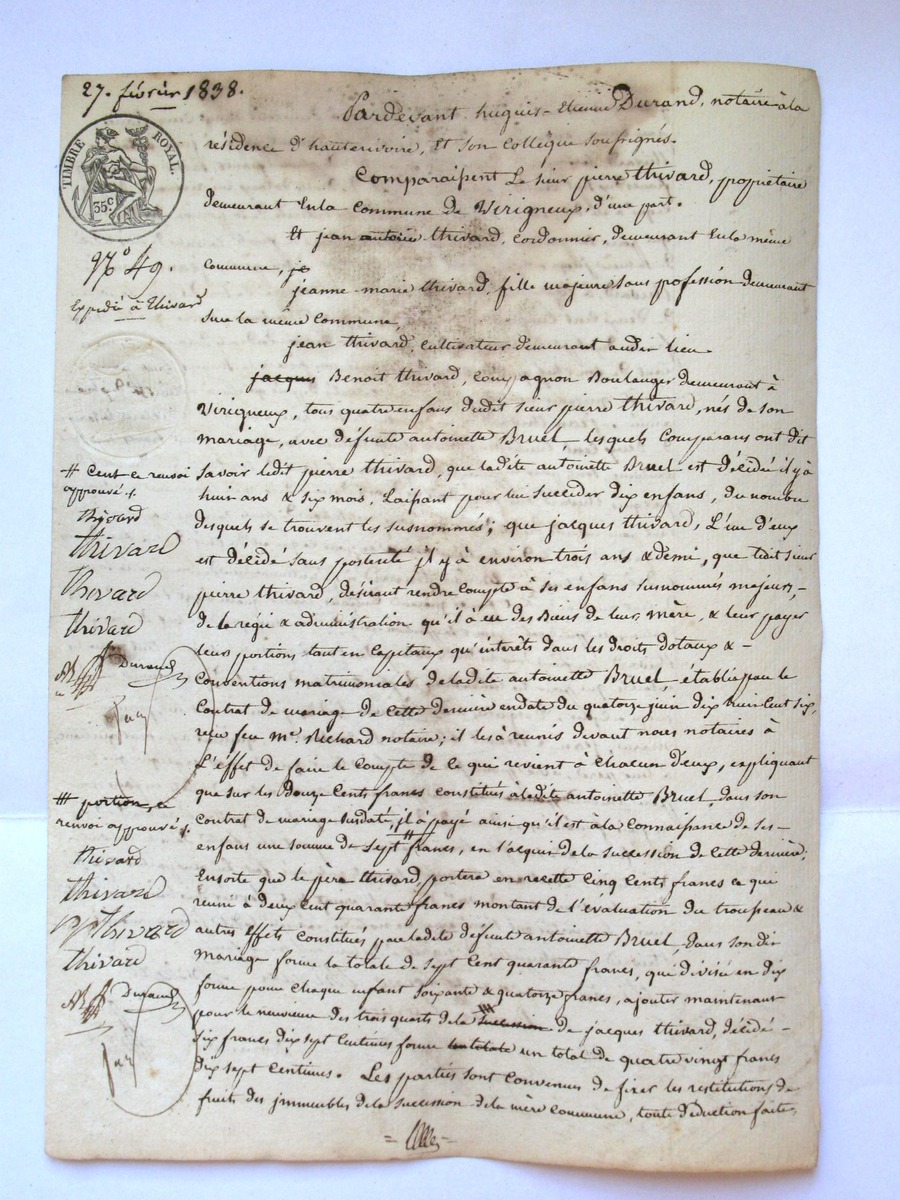 27. février 1838.
Pardevant hugues-Etienne Durand, notaire à la
résidence d'hauterivoire, Et son Collègue soussignés.
TIMBRE ROYAL.
35.c
Comparaissent Le sieur pierre thivard, propriétaire
demeurant En la Commune de Virigneux, d'une part.
Et jean antoine thivard, Cordonnier, demeurant En la même
Commune, je
N.o 49.
Expédié à thivard
jeanne-marie thivard, fille majeure sans profession demeurant
sur la même Commune,
jean thivard, Cultivateur demeurant audit lieu.
jacques Benoit thivard, Compagnon Boulanger demeurant à
Virigneux, tous quatre enfans dudit sieur pierre thivard, nés de son
mariage, avec défunte antoinette Bruel, lesquels Comparans ont dit
Savoir ledit pierre thivard, que ladite antoinette Bruel est décédée il y à
huit ans & six mois, Laissant pour lui succéder dix enfans, du nombre
desquels se trouvent les susnommés; que jacques thivard, L'un d'eux
est décédé sans postérité il y à environ trois ans & demi, que ledit sieur
pierre thivard, désirant rendre Compte à ses enfans susnommés majeurs,-
de la régie & administration qu'il à eue des Biens de leur mère, & leur payer
leurs portions tant en Capitaux qu'intérêts dans les droits dotaux & -
Conventions matrimoniales de ladite antoinette Bruel établis par le
Contrat de mariage de Cette dernière en date du quatorze juin dix huit Cent six,
reçu feu Me. Richard notaire; il les à réunis devant nous notaires à
L'effet de faire le Compte de Ce qui revient à Chacun d'eux, expliquant
que sur les Douze Cents francs constitués à ladite antoinette Bruel, dans son
Contrat de mariage susdaté, il à payé ainsi qu'il est à la Connaissance de ses-
enfans une somme de sept # francs, en l'acquit de la succession de Cette dernière;
Ensorte que le père thivard, portera en recette Cinq Cents francs Ce qui
réuni à deux Cent quarante francs montant de l'évaluation du trousseau &
autres Effets Constitués par ladite défunte antoinette Bruel, dans son dit
mariage forme la totale de sept Cent quarante francs, qui divisé en dix
forme pour Chaque enfant soixante & quatorze francs, ajouter maintenant
pour le neuvième des trois quarts de la succession de jacques thivard, décédé-
six francs dix sept Centimes forme la totale un total de quatre vingt francs
dix sept Centimes. Les parties sont Convenues de fixer les restitutions de
fruits des immeubles de la succession de la mère Commune, toute déduction faite,
# Cent Ce renvoi
approuvé.
thivard
thivard
thivard
thivard
Durand
# portion, Ce
renvoi approuvé.
thivard
thivard
thivard
thivard
Durand